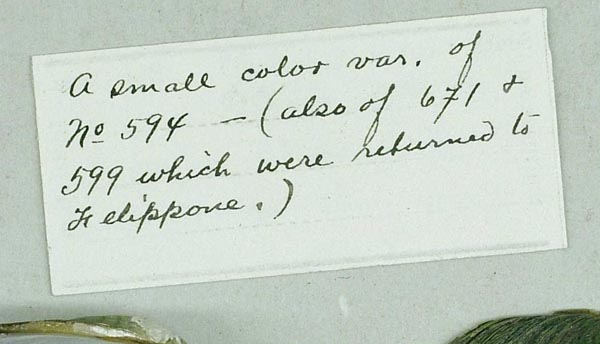 A small color var. of
No 594 — (also of 671 &
599 which were returned to
Felippone.)